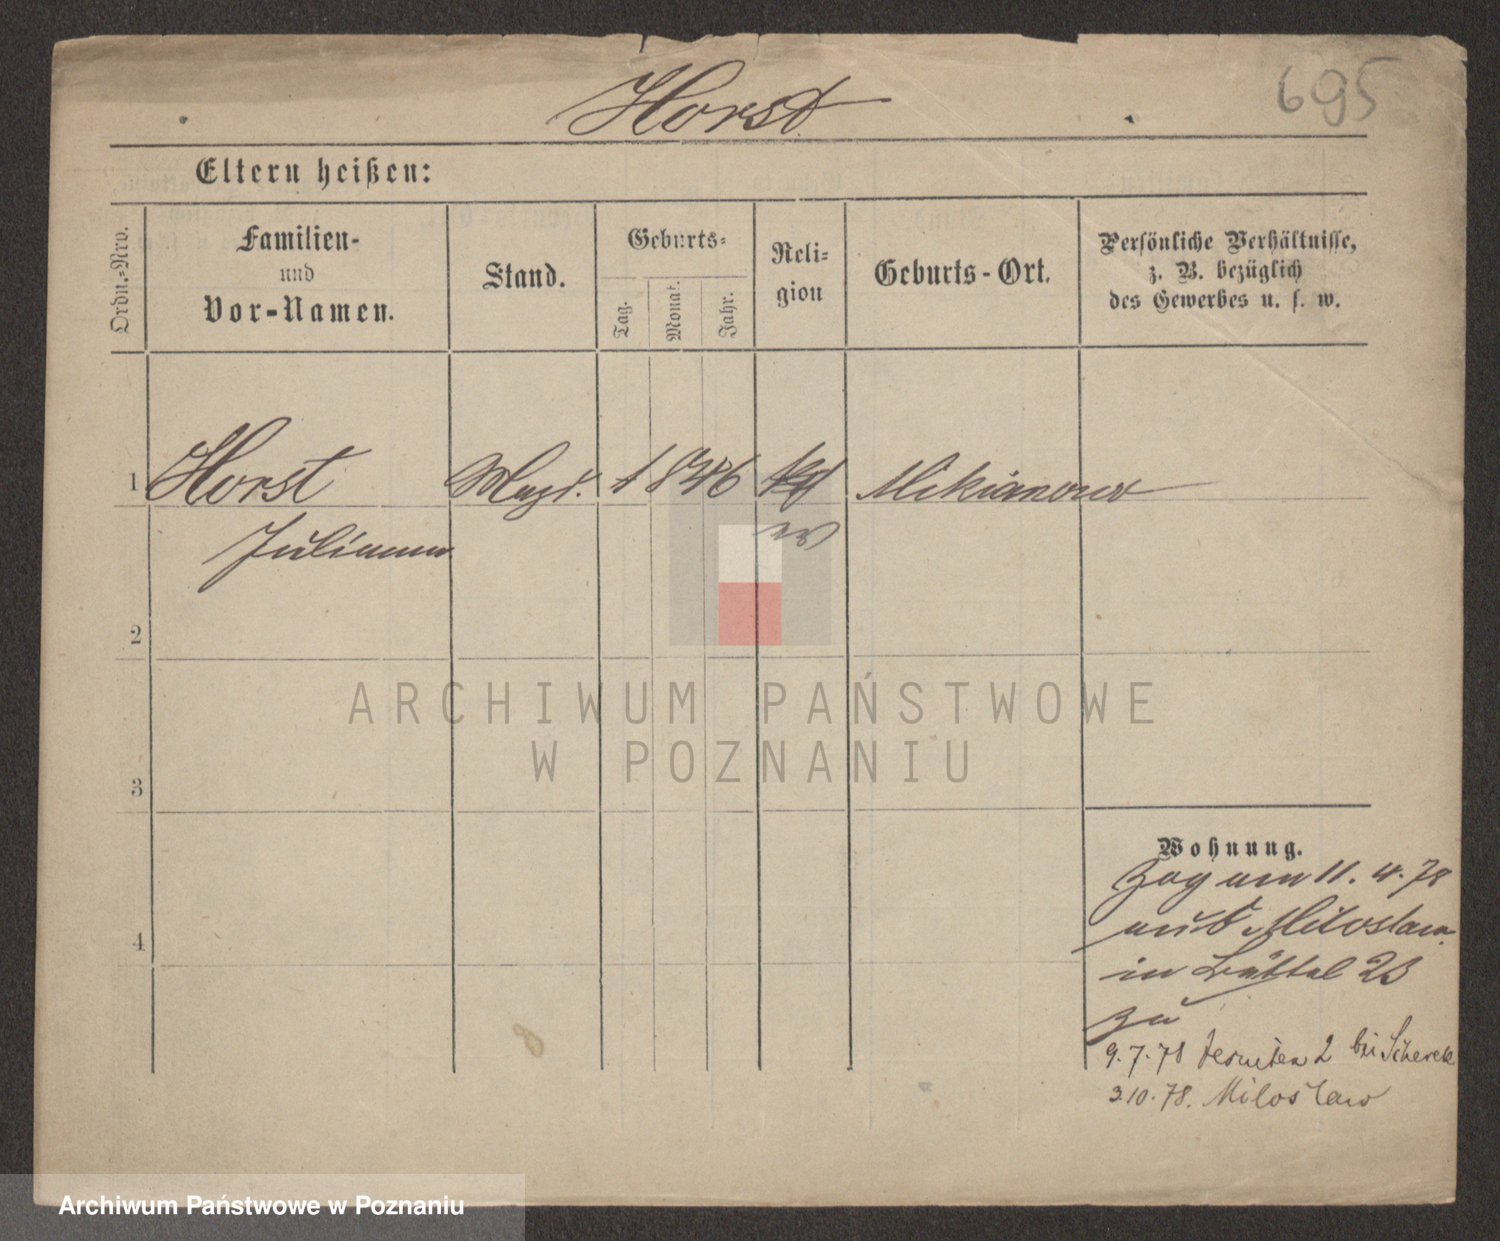 Horst
695
Eltern heißen:
Ordn.-Nro.
Familien-
und
Vor-Namen.
Stand.
Geburts-
Tag.
Monat.
Jahr.
Reli-
gion
Geburts-Ort.
Persönliche Verhältnisse,
z. B. bezüglich
des Gewerbes u. s. w.
1 Horst 1846
Julianna
2
3
4
Wohnung.
Zog am 11. 4. 78
aus Miloslaw
in Büttel 23
zu
9. 7. 78 Jesuiten 2 bei Scherek
3 10. 78. Miloslaw
ARCHIWUM PAŃSTWOWE
W POZNANIU
Archiwum Państwowe w Poznaniu